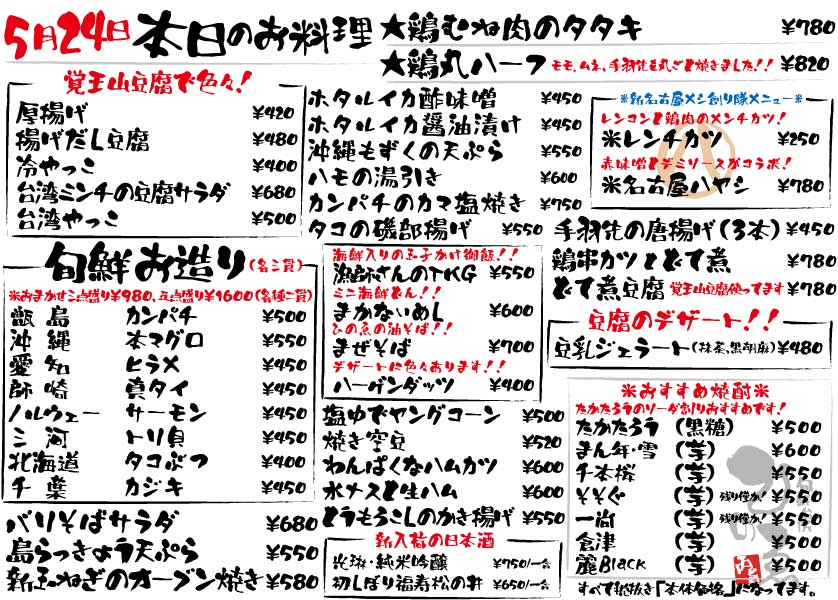 5月24日 本日のお料理
★鶏むね肉のタタキ ¥780
★鶏丸ハーフ モモ、ムネ、手羽先を丸ごと焼きました!! ¥820
覚王山豆腐で色々!
厚揚げ ¥420
揚げだし豆腐 ¥480
冷やっこ ¥400
台湾ミンチの豆腐サラダ ¥680
台湾やっこ ¥500
ホタルイカ酢味噌 ¥450
ホタルイカ醤油漬け ¥450
沖縄もずくの天ぷら ¥550
ハモの湯引き ¥600
カンパチのカマ塩焼き ¥750
タコの磯部揚げ ¥550
※新名古屋メシ創り隊メニュー※
レンコンと鶏肉のメンチカツ!
※レンチカツ ¥250
赤味噌とデミソースがコラボ!
※名古屋ハヤシ ¥780
手羽先の唐揚げ(3本) ¥450
鶏串カツとどて煮 ¥780
どて煮豆腐 覚王山豆腐使ってます ¥780
旬鮮お造り(各三貫)
※おまかせ三点盛り¥980、五点盛り¥1600(各種二貫)
甑島 カンパチ ¥500
沖縄 本マグロ ¥550
愛知 ヒラメ ¥450
師崎 真タイ ¥450
ノルウェー サーモン ¥450
三河 トリ貝 ¥450
北海道 タコぶつ ¥400
千葉 カジキ ¥450
海鮮入りの玉子かけ御飯!!
漁師さんのTKG ¥550
ミニ海鮮どん!!
まかないめし ¥600
ひの魚の油そば!!
まぜそば ¥700
デザートに色々あります!!
ハーゲンダッツ ¥400
豆腐のデザート!!
豆乳ジェラート(抹茶,黒胡麻) ¥480
塩ゆでヤングコーン ¥500
焼き空豆 ¥520
わんぱくなハムカツ ¥600
水ナスと生ハム ¥600
とうもろこしのかき揚げ ¥550
※おすすめ焼酎※
たかたろうのソーダ割りおすすめです!
たかたろう (黒糖) ¥500
まん年・雪 (芋) ¥600
千本桜 (芋) ¥550
そそぐ (芋) 残り僅か! ¥550
一尚 (芋) 残り僅か! ¥550
倉津 (芋) ¥500
麗Black (芋) ¥500
すべて税抜き「本体価格」になってます。
バリそばサラダ ¥680
島らっきょう天ぷら ¥550
新玉ねぎのオーブン焼き ¥580
新入荷の日本酒
光琳・純米吟醸 ¥750/一合
初しぼり福寿松の井 ¥650/一合